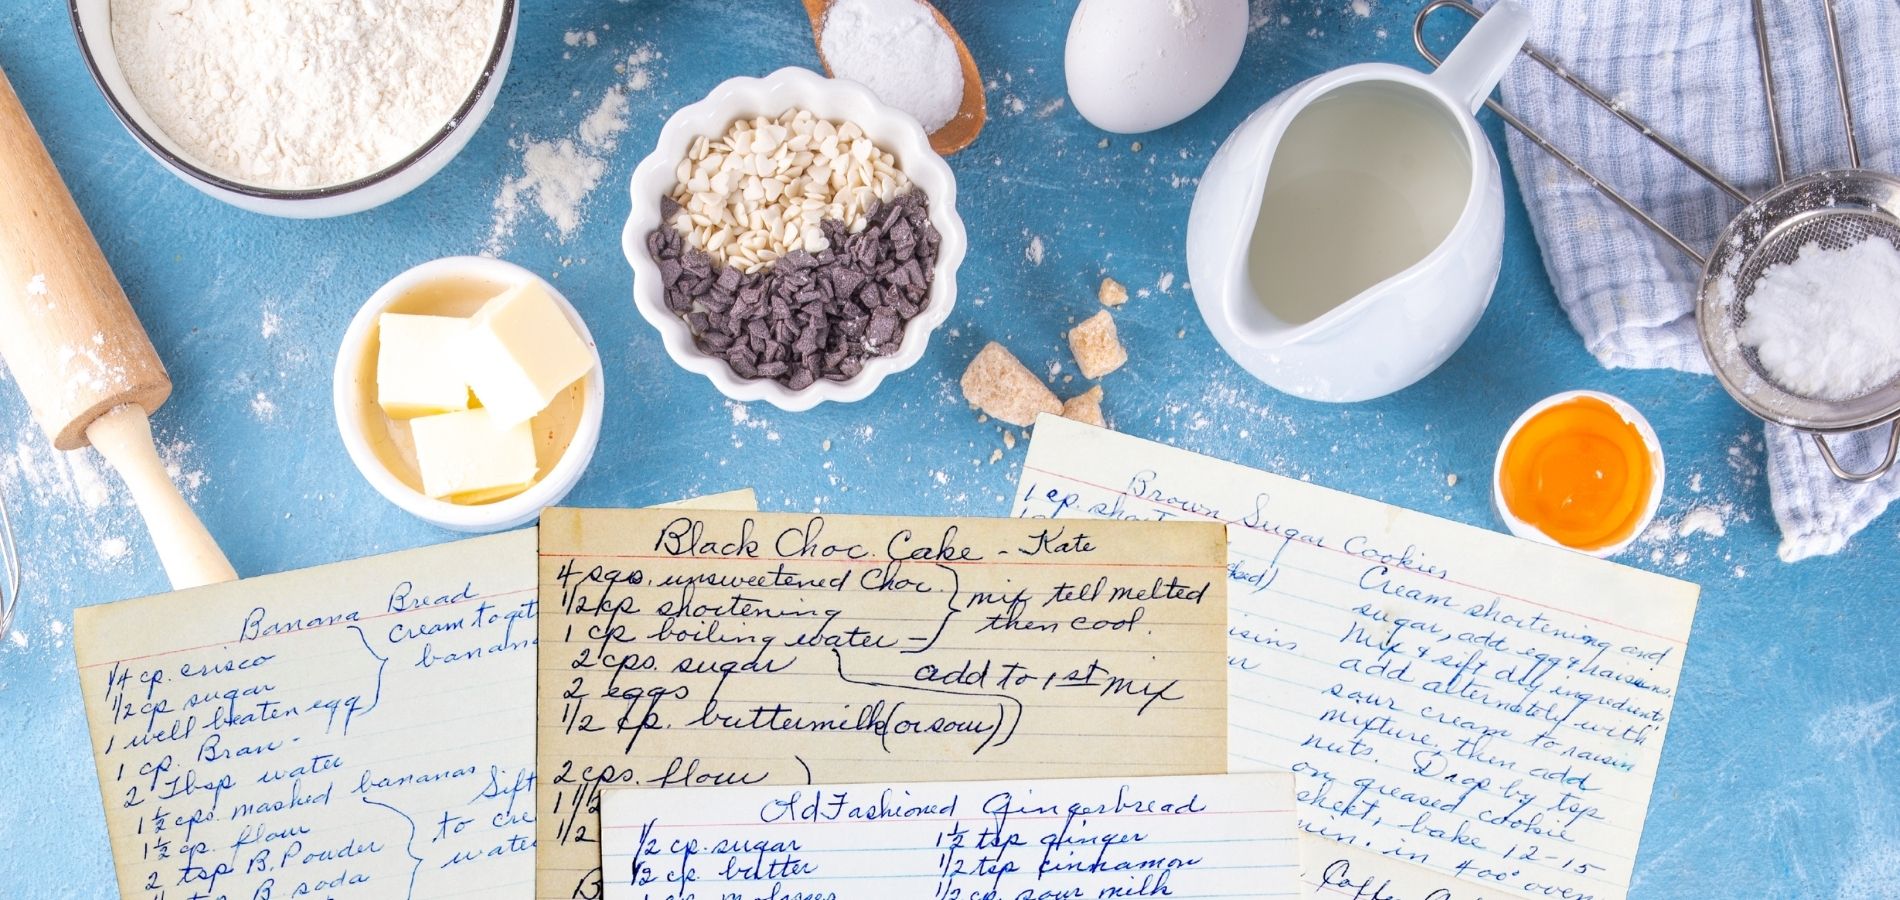 Banana Bread
1/4 cp. crisco
1/2 cp sugar
1 well beaten egg
cream
banan
1 cp. Bran -
2 Tbsp water
1 1/2 cps. mashed bananas
1 1/2 cp. flour
2 tsp B. Powder
tsp B. soda
Sift
to cre
water
Black Choc. Cake - Kate
4 sqs. unsweetened Choc.
1/2 cp shortening
1 cp boiling water -
mix tell melted
then cool.
2 cps. sugar
2 eggs
1/2 cp. buttermilk (or sour)
add to 1st mix
2 cps. flour
1 1/2
1/2
B
Old Fashioned Gingerbread
1/2 cp. sugar
1/2 cp. butter
cp. molasses
1 1/2 tsp ginger
1/2 tsp cinnamon
1/2 cp. sour milk
Brown Sugar Cookies
1 cp. short
Cream shortening and
sugar, add egg & raisins.
Mix & sift dry ingredients
add alternately with
sour cream to raisin
mixture, then add
nuts. Drop by tsp.
on greased cookie
sheet, bake 12-15
min. in 400° oven